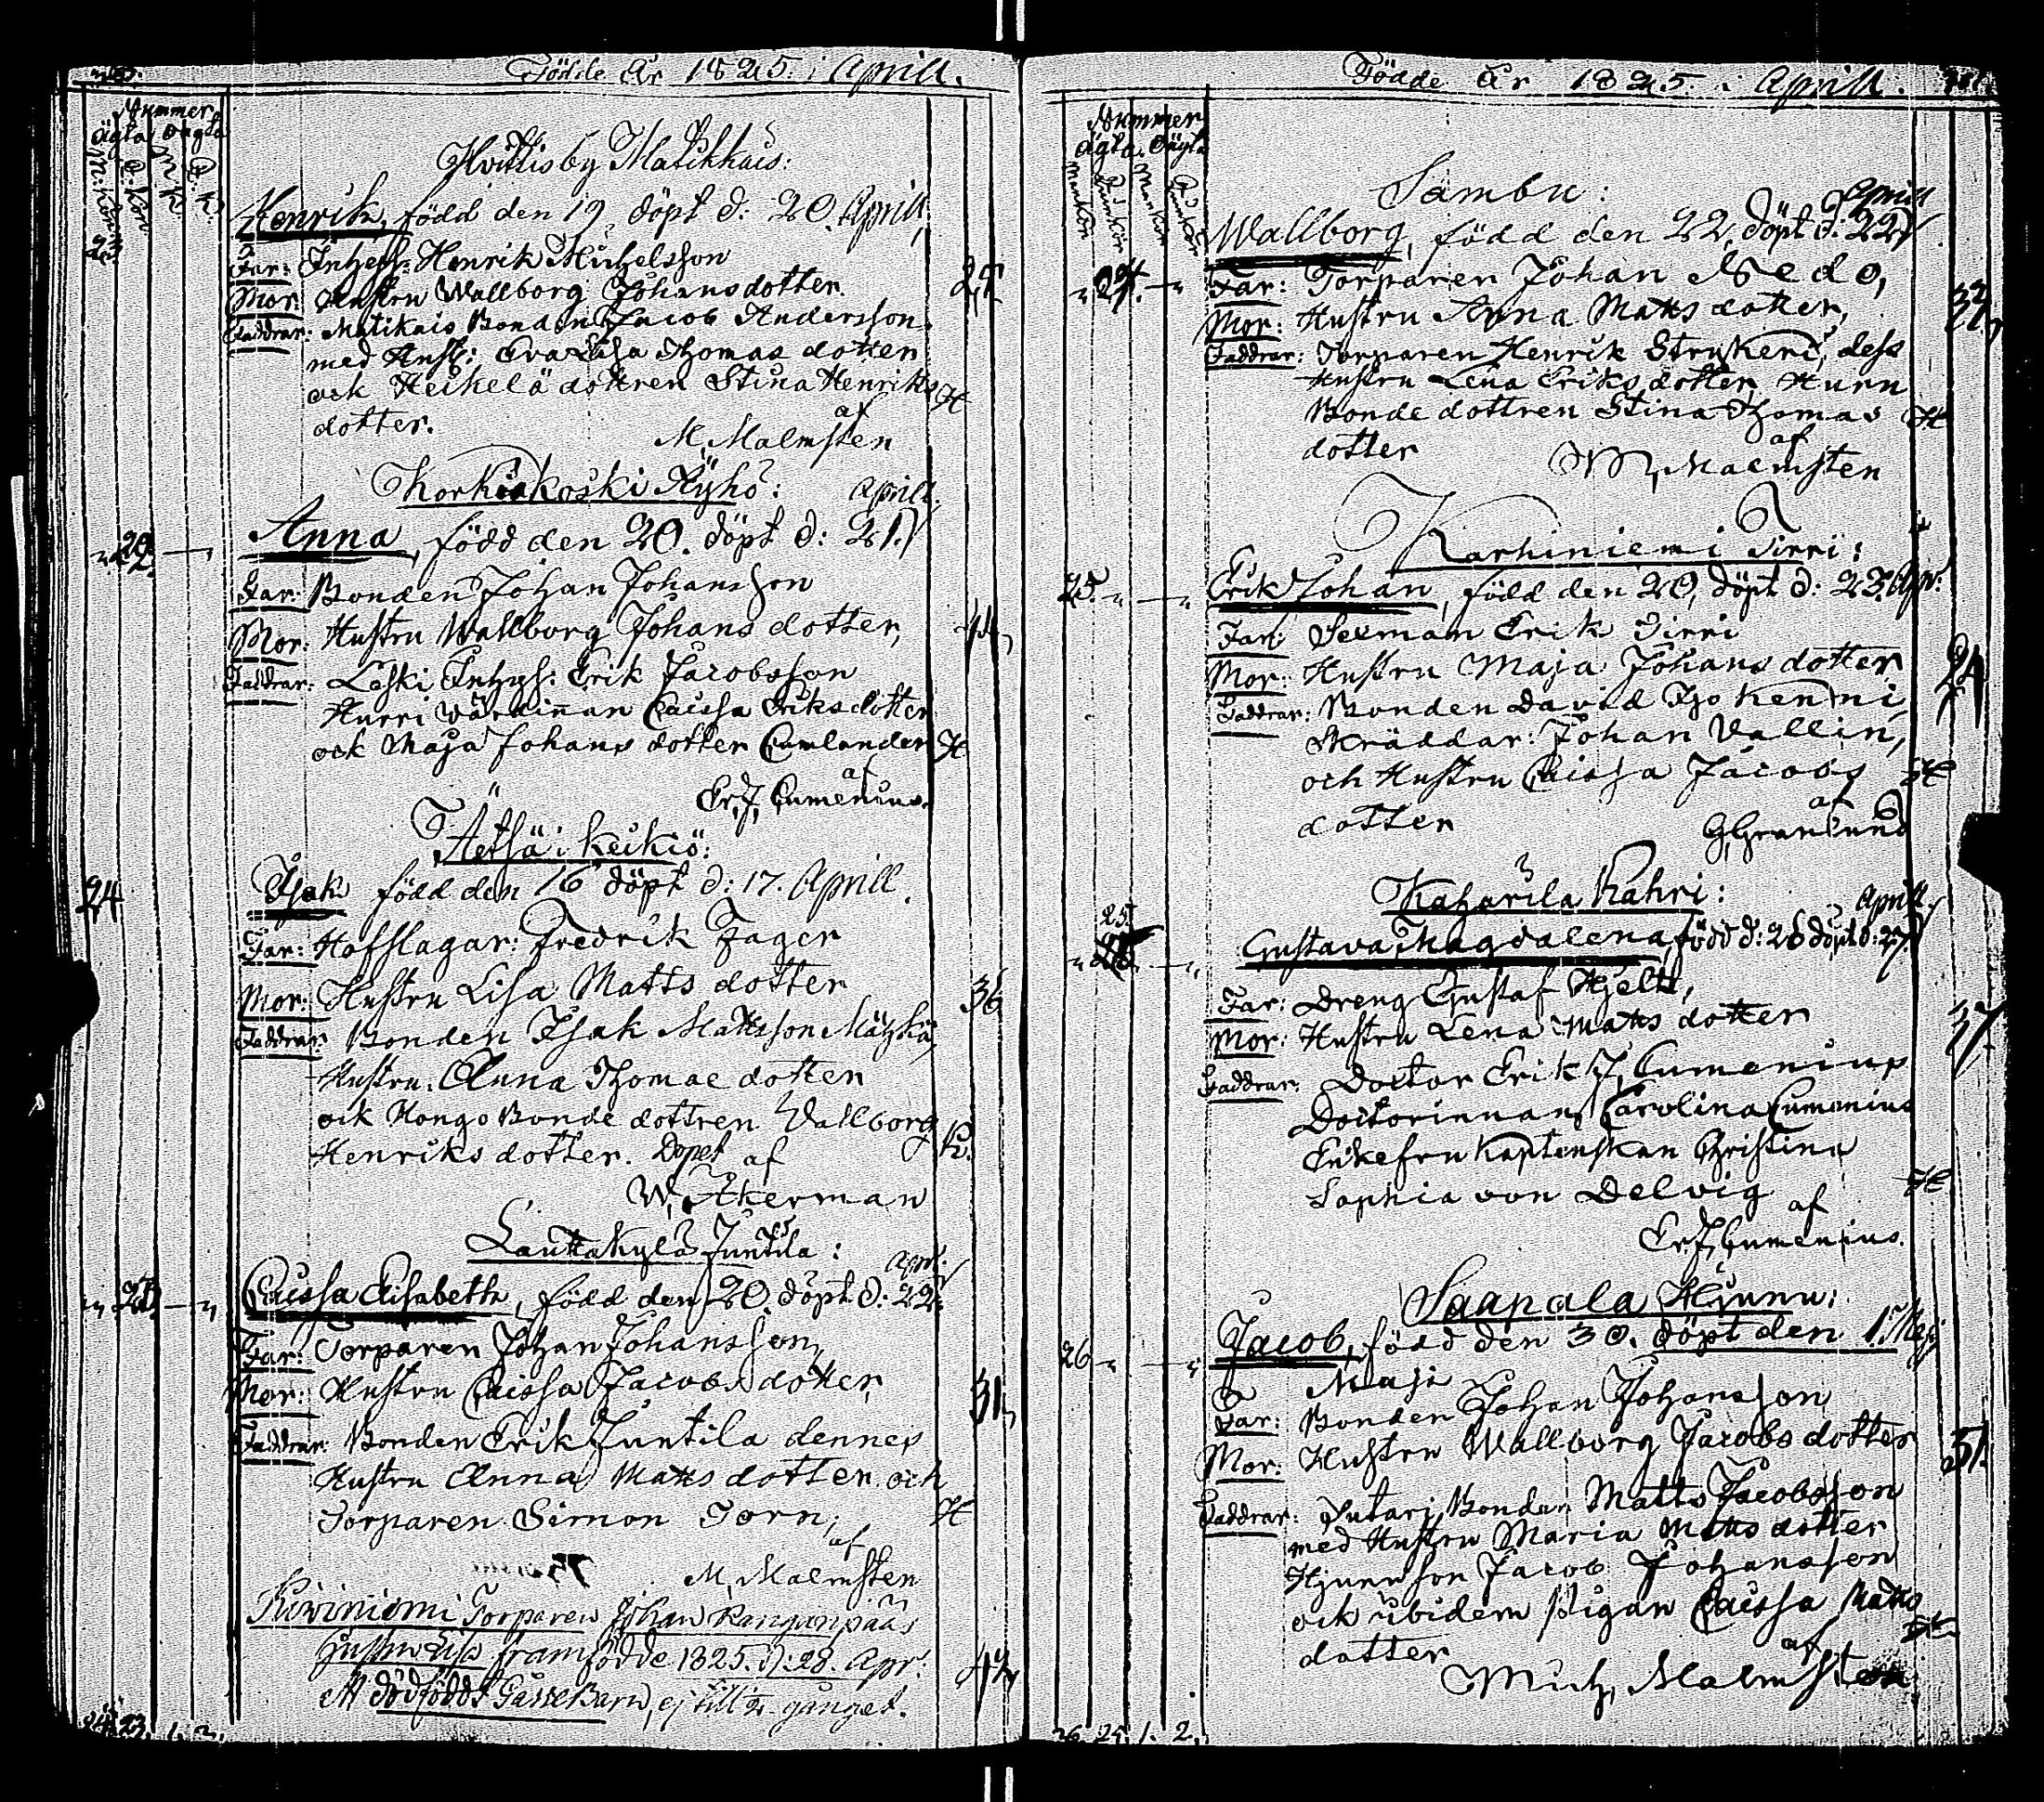 Födde År 1825. i Aprill.
Nummer
Ägta Oägta
Hvittisby Matikkais:
Henrik, född den 19, döpt d: 20. Aprill,
23
Far: Inhys: Henrik Michelsson
Mor: Hustru Wallborg Johansdotter.
Faddrar: Matikais Bonden Jacob Andersson
med Hust: Eva Lisa Thomas dotter
ock Heikelä dottren Stina Henriks
dotter.
af
M, Malmsten
Korkiakoski Äyhö: Aprill.
22. Anna, född den 20. döpt d: 21.
Far: Bonden Johan Johansson
Mor: Hustru Wallborg Johans dotter,
Faddrar: Laski Inhys: Erik Jacobsson
Hurri Värdinnan Caissa Eriks dotter
ock Maja Johans dotter Cumlander H
af
Er, J, Cumenius.
Äetsä i Keikiö:
24 Isak född den 16 döpt d: 17. Aprill.
Far: Hofslagar: Fredrik Fager
Mor: Hustru Lisa Matts dotter 36
Faddrar: Bonden Isak Mattsson
Hustru. Anna Thomae dotter
ock Hongo Bonde dottren Vallborg
Henriks dotter. Döpet af
W, Åkerman
Lauttakylä Juntila:
Apr.
23, Caissa Elisabeth, född den 20. döpt d: 22.
Far: Torparen Johan Johansson,
Mor: Hustru Caissa Jacobs dotter, 31,
Faddrar: Bonden Erik Juntila dennes
Hustru Anna Matts dotter. och
Torparen Simon Torn, H
af
M, Malmsten
Kiviniemi Torparen Johan Kanganpääs
Hustru Lisa framfödde 1825. d: 28. Apr:
Ett dödfödt Gosse Barn, ej till gånget.
24. 23. 1. 2.
Födde År 1825. i Aprill.
Nummer
Ägta. Oägta
Mankön Qvinkön Mankön Qvinkön
Sambu:
Aprill
24. Wallborg, född den 22, döpt d: 22
Far: Torparen Johan
Mor: Hustru Anna Matts dotter,
Faddrar: Torparen Henrik Strykeri, dess
Hustru Lena Eriks dotter, Hurn
Bonde dottren Stina Thomas H
dotter
af
M, Malmsten
Karhiniemi Tirri:
25. Erik Johan, född den 20, döpt d: 23. Apr.
Far: Sexman Erik Tirri
Mor: Hustru Maja Johans dotter
Faddrar: Bonden David
Skräddar: Johan Vallin,
och Hustru Caissa Jacobs
dotter
af
G, Granlund
Kaharila Kahri:
Aprill
25. Gustava Magdalena, född d: 26 döpt d: 27
Far: Dreng Gustaf Hjelt,
Mor: Hustru Lena Matts dotter 37.
Faddrar: Doctor Erik J, Cumenius
Doctorinnan Carolina Cumenius
Enkefru Kaptenskan Christina
Sophia von Delvig
af
Er. J, Cumenius.
Saapala Hjunu:
26 Jacob, född den 30. döpt den 1. Maji
Maji
Far: Bonden Johan Johansson
Mor: Hustru Wallborg Jacobs dotter 31.
Faddrar: Bonden Matts Jacobsson
med Hustru Maria Matts dotter
Hjunu son Jacob Johansson
ock ibidem Pigan Caissa Matts
dotter
af
Mich, Malmsten
26. 25. 1. 2.